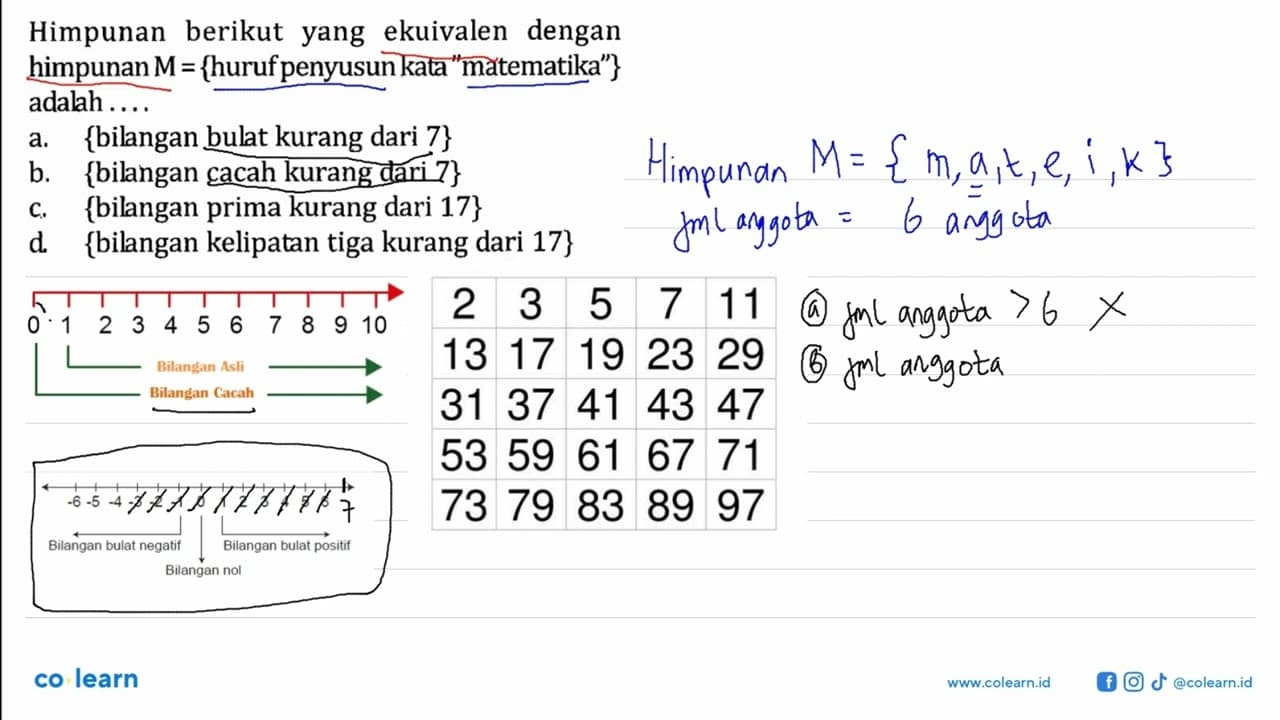 Himpunan berikut yang ekuivalen dengan
himpunan M = {huruf penyusun kata "matematika"}
adalah . . . .
a. {bilangan bulat kurang dari 7}
b. {bilangan cacah kurang dari 7}
c. {bilangan prima kurang dari 17}
d. {bilangan kelipatan tiga kurang dari 17}
Himpunan M = { m, a, t, e, i, k }
jml anggota = 6 anggota
0 1 2 3 4 5 6 7 8 9 10
Bilangan Asli
Bilangan Cacah
-6 -5 -4 -3 -2 -1 0 1 2 3 4 5 6 7
Bilangan bulat negatif Bilangan bulat positif
Bilangan nol
2 3 5 7 11
13 17 19 23 29
31 37 41 43 47
53 59 61 67 71
73 79 83 89 97
ⓐ jml anggota > 6 X
ⓑ jml anggota
co learn
www.colearn.id
@colearn.id